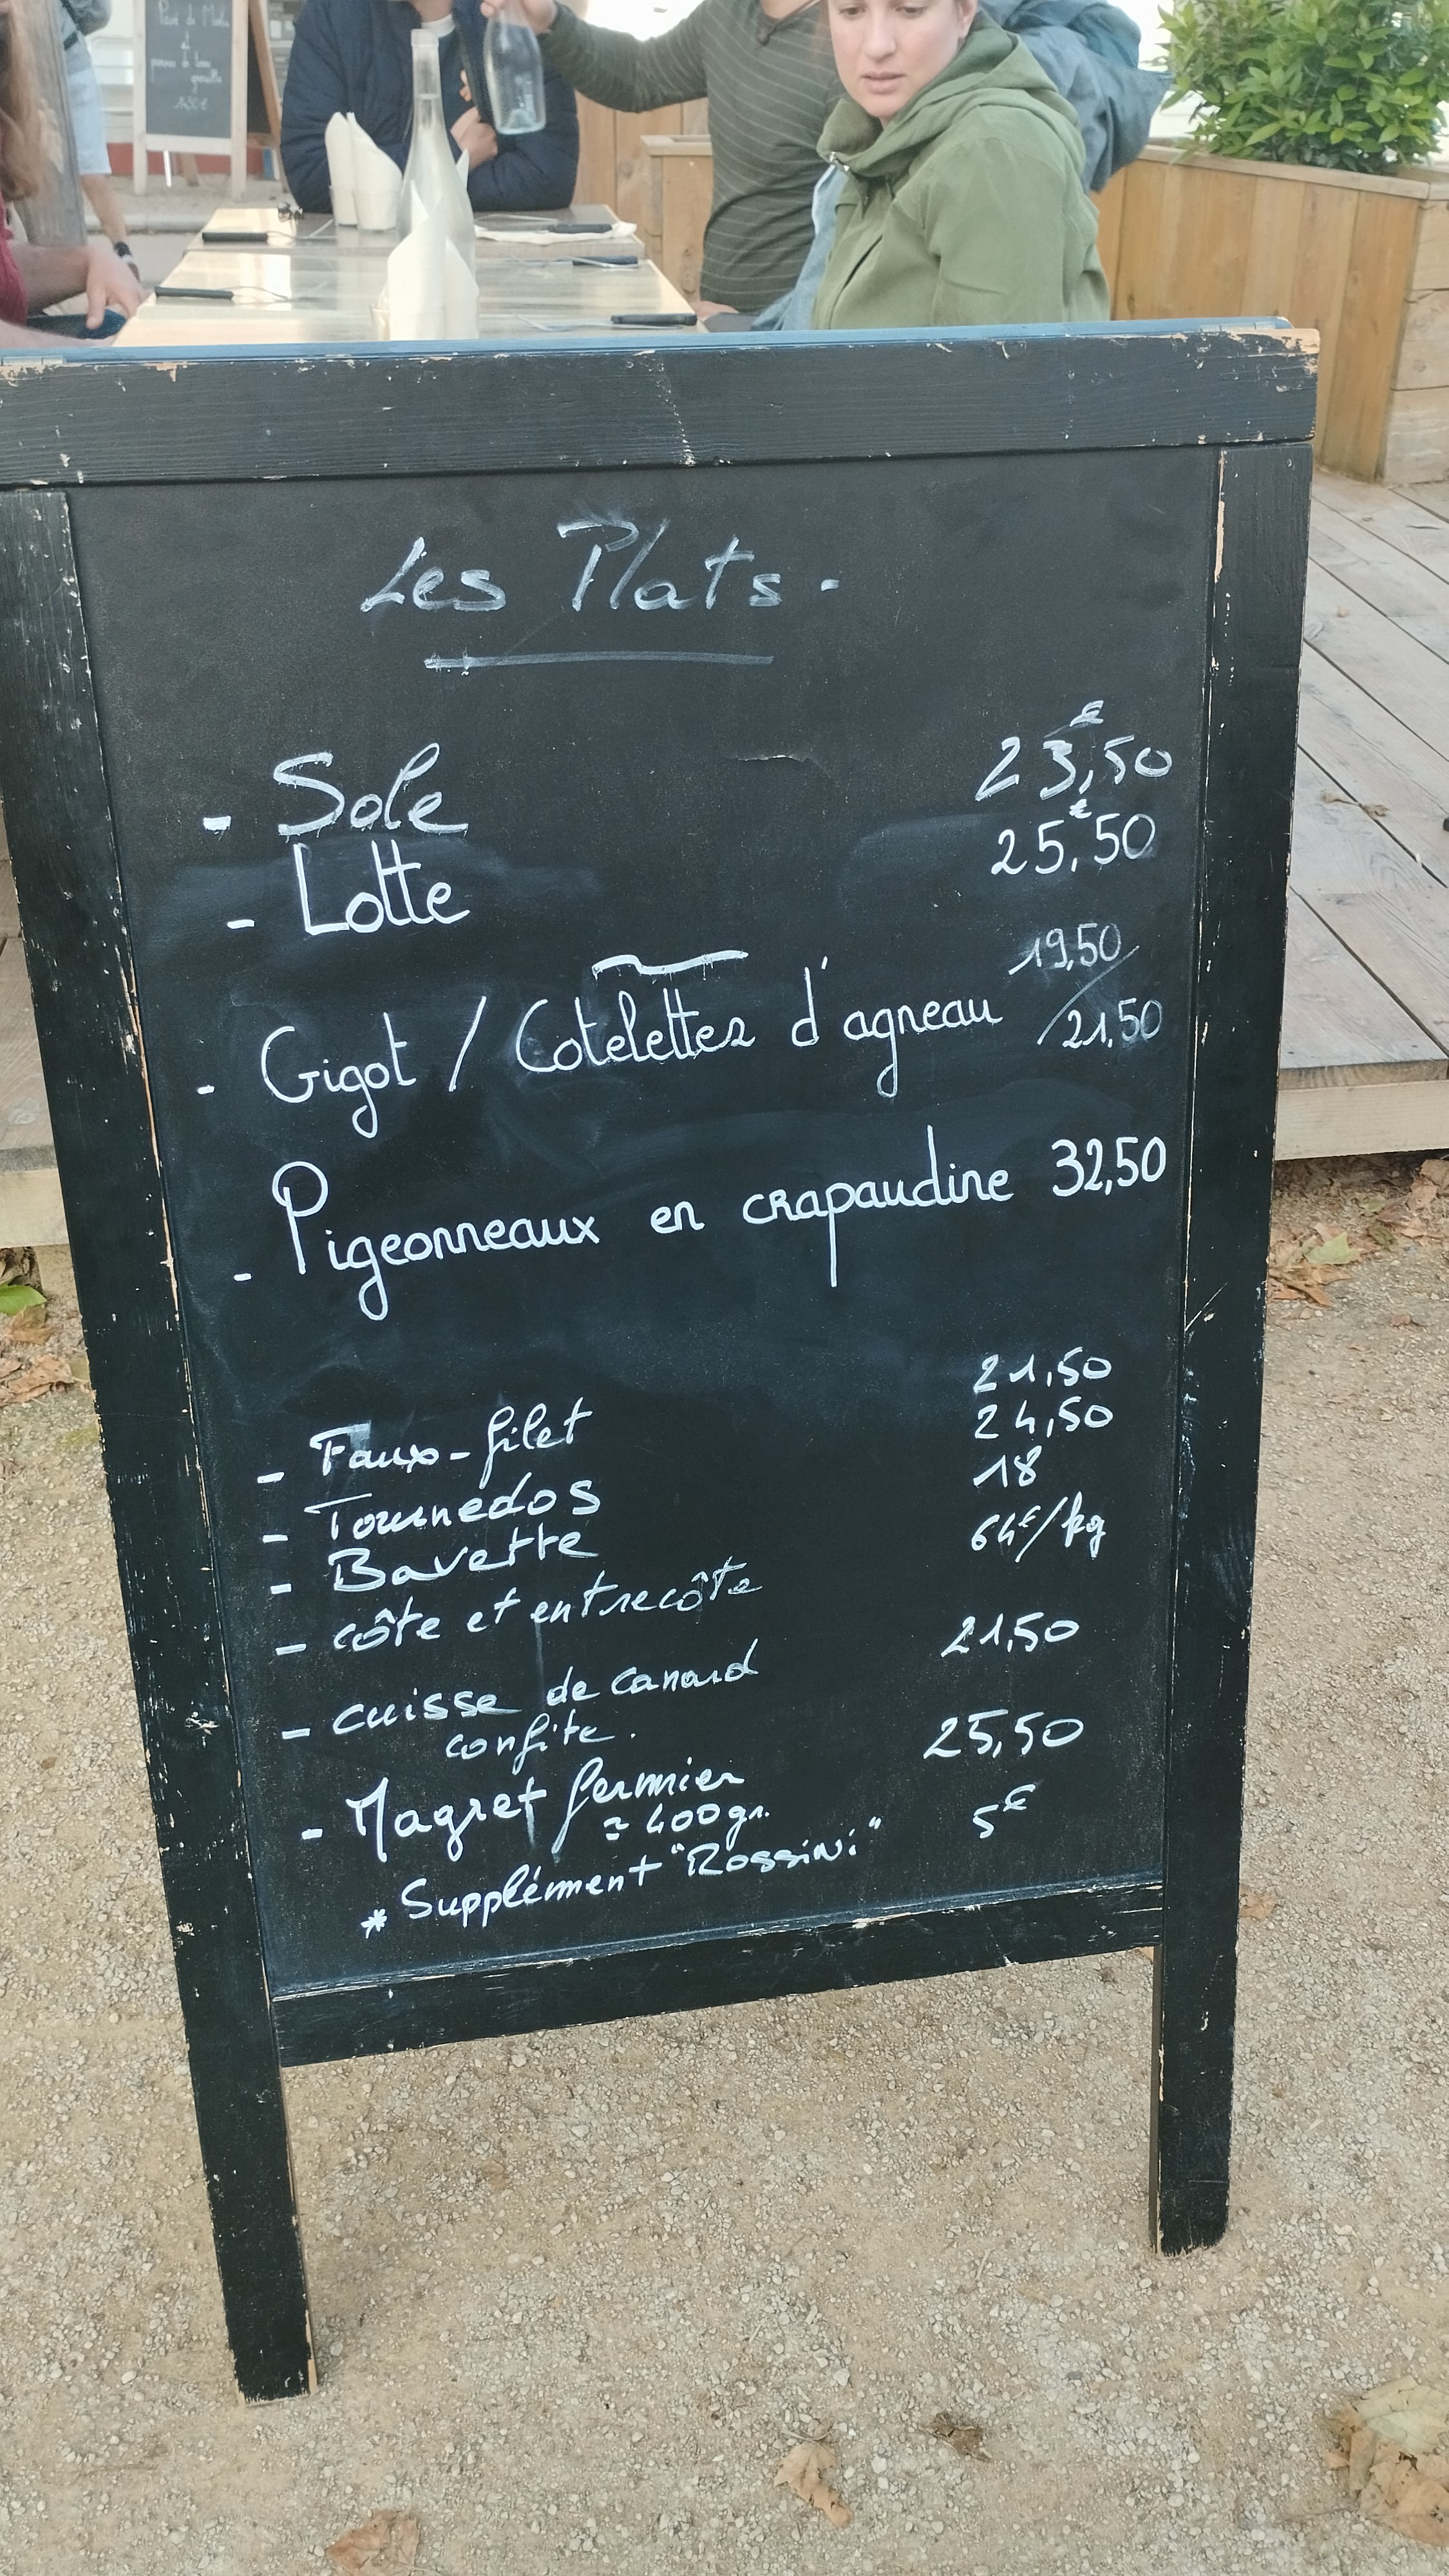 Pavé de
à
pommes de terre
grenaille
Les Plats.
- Sole 23,50€
- Lotte 25,50€
- Gigot / Cotelettes d'agneau 19,50 / 21,50
- Pigeonneaux en crapaudine 32,50
- Faux-filet 21,50
- Tournedos 24,50
- Bavette 18
- côte et entrecôte 64€/kg
- cuisse de canard 21,50
confite.
- Magret fermier 25,50
≃ 400gr.
* Supplément "Rossini" 5€